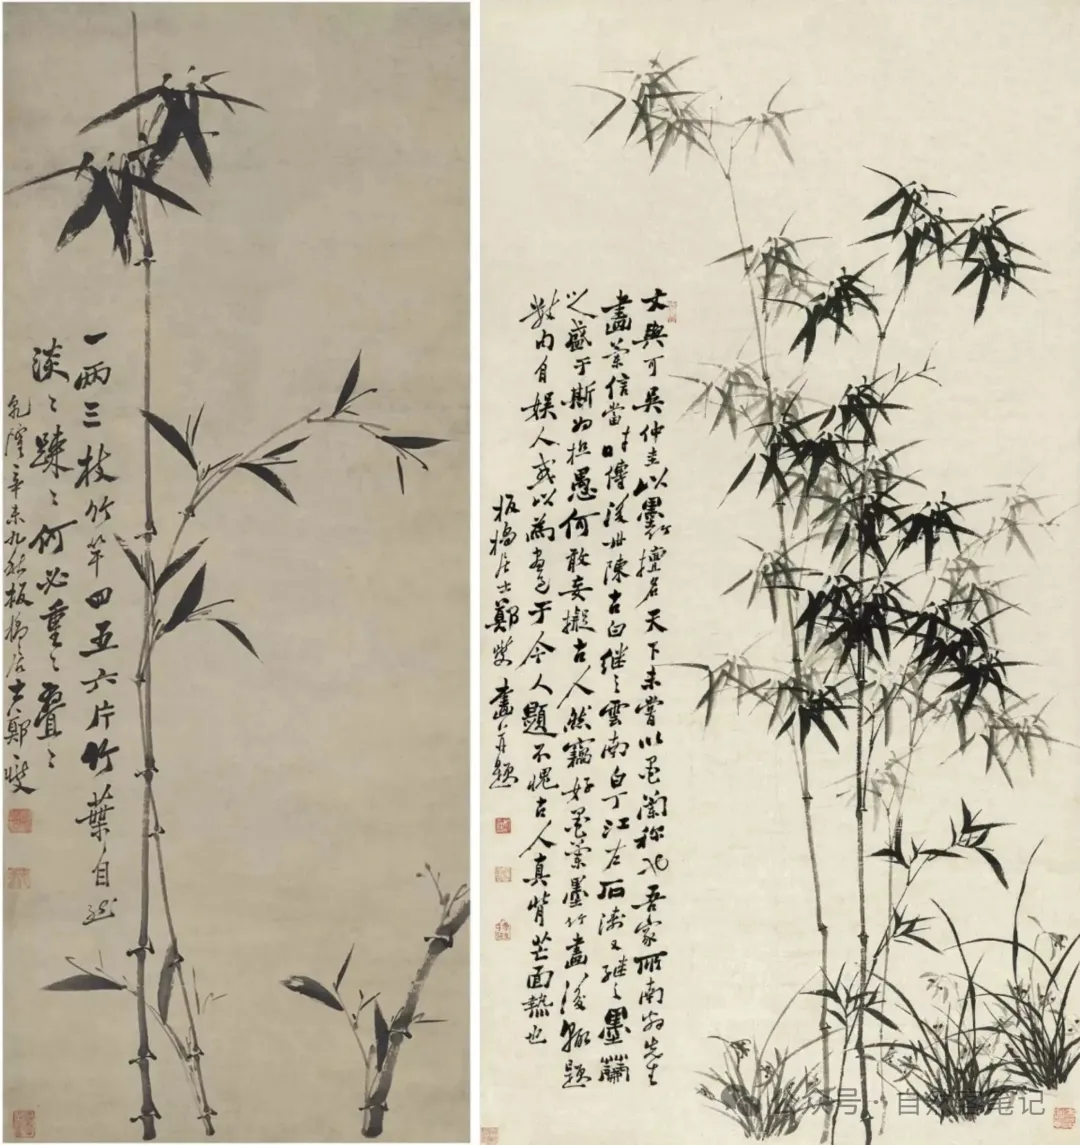 一兩三枝竹竿四五六片竹葉自然
淡〻疎〻何必重〻疊〻
乾隆辛未九秋板橋居士鄭燮
文與可吳仲圭以墨竹擅名天下未嘗以墨蘭称也吾家所南翁先生
畫蘭信當時傳後世陳古白继之雲南白丁江左石濤又继之墨蘭
之盛于斯为極愚何敢妄擬古人然竊好墨蘭墨竹畫後輒題
自娱人或以為畫于今人題不愧古人真背芒面熱也
板橋居士鄭燮畫并題
公众号 · 自然笔记